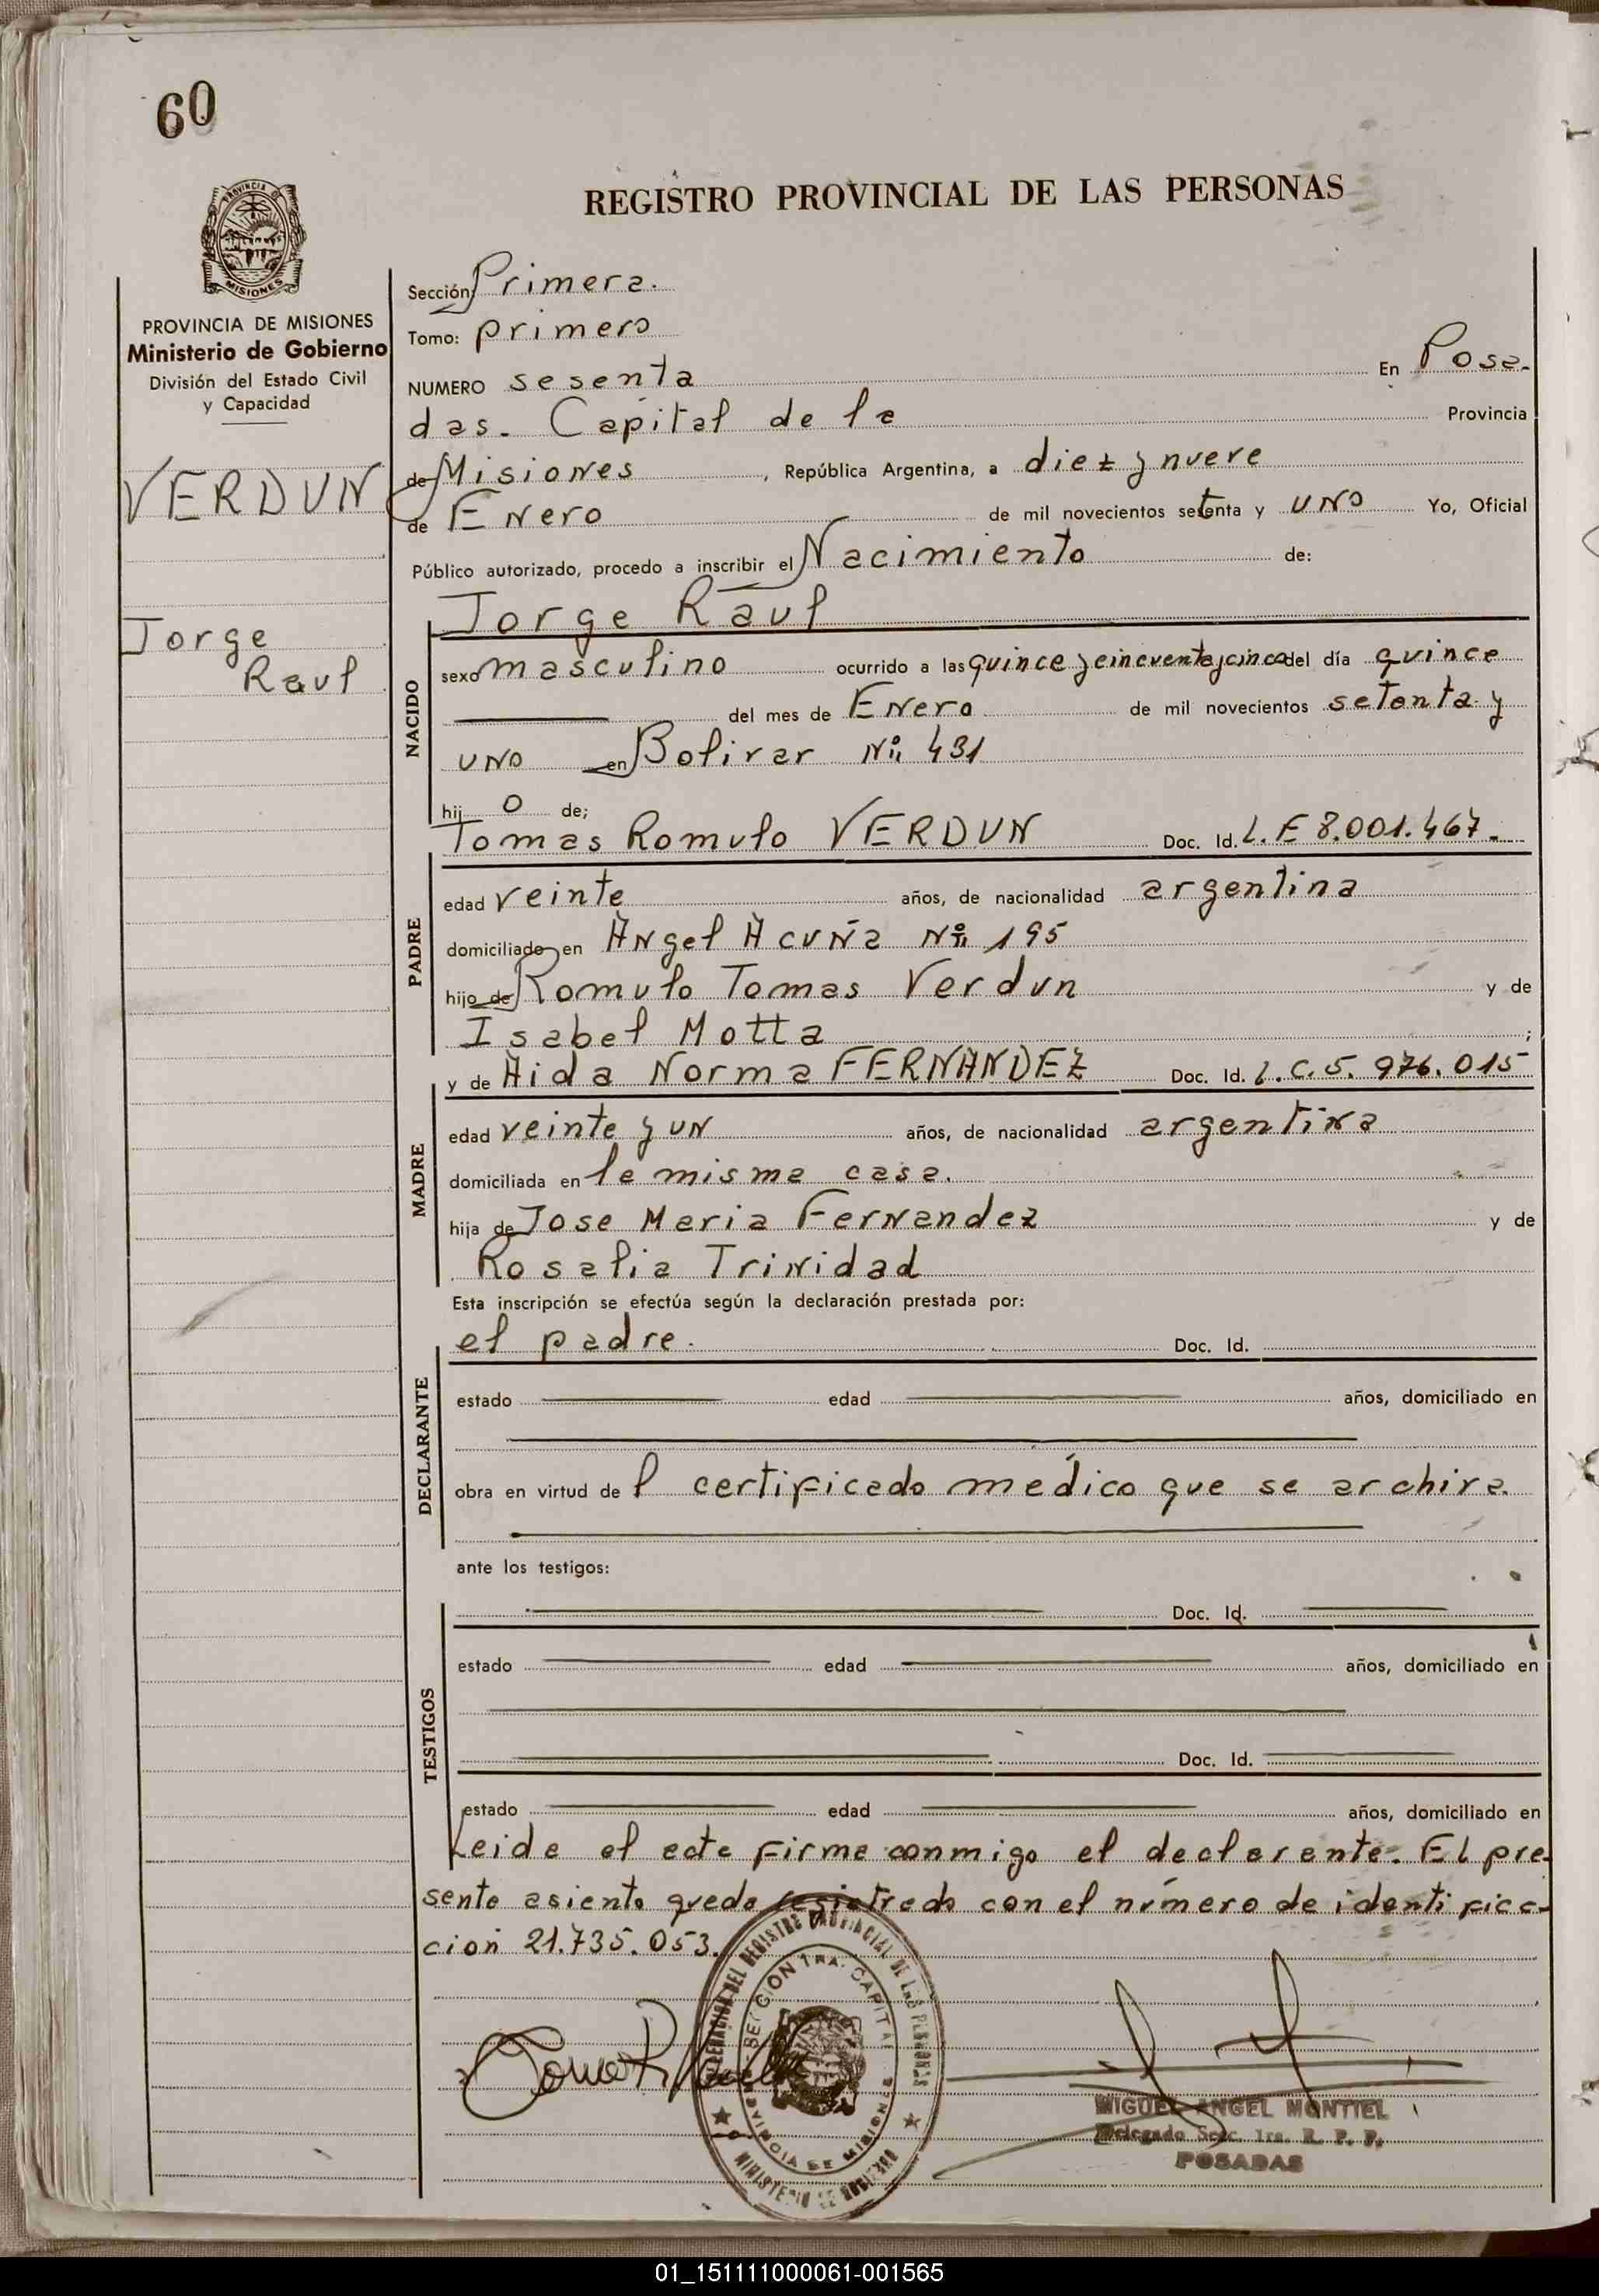 60
REGISTRO PROVINCIAL DE LAS PERSONAS
PROVINCIA DE MISIONES
Ministerio de Gobierno
División del Estado Civil
y Capacidad
VERDUN
Jorge
Raul
Sección: Primera.
Tomo: primero
NUMERO sesenta En Posa-
das. Capital de la Provincia
de Misiones, República Argentina, a diez y nueve
de Enero de mil novecientos setenta y uno Yo, Oficial
Público autorizado, procedo a inscribir el Nacimiento de:
Jorge Raul
NACIDO
sexo masculino ocurrido a las quince y cincuenta y cinco del día quince
del mes de Enero de mil novecientos setenta y
uno en Bolivar Nº 431
hij o de;
Tomas Romulo VERDUN Doc. Id. L.E 8.001.467.
PADRE
edad veinte años, de nacionalidad argentina
domiciliado en Angel Acuña Nº 195
hijo de Romulo Tomas Verdun y de
Isabel Motta ;
y de Aida Norma FERNANDEZ Doc. Id. L.C. 5.976.015
MADRE
edad veinte y un años, de nacionalidad argentina
domiciliada en la misma casa.
hija de Jose Maria Fernandez y de
Rosalia Trinidad
Esta inscripción se efectúa según la declaración prestada por:
el padre. Doc. Id.
DECLARANTE
estado edad años, domiciliado en
obra en virtud de l certificado médico que se archiva.
ante los testigos:
Doc. Id.
TESTIGOS
estado edad años, domiciliado en
Doc. Id.
estado edad años, domiciliado en
Leida el acta firma conmigo el declarante. El pre-
sente asiento queda registrado con el número de identifica-
ción 21.735.053.
SECCION 1RA. CAPITAL
PROVINCIA DE MISIONES
MINISTERIO DE GOBIERNO
MIGUEL ANGEL MONTIEL
Delegado Secc. 1ra. R. P. P.
POSADAS
01_151111000061-001565